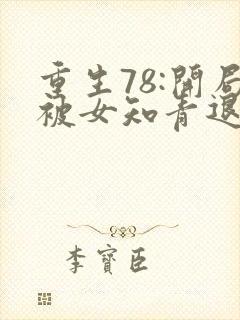 重生78:開局
被女知青退
李寳臣